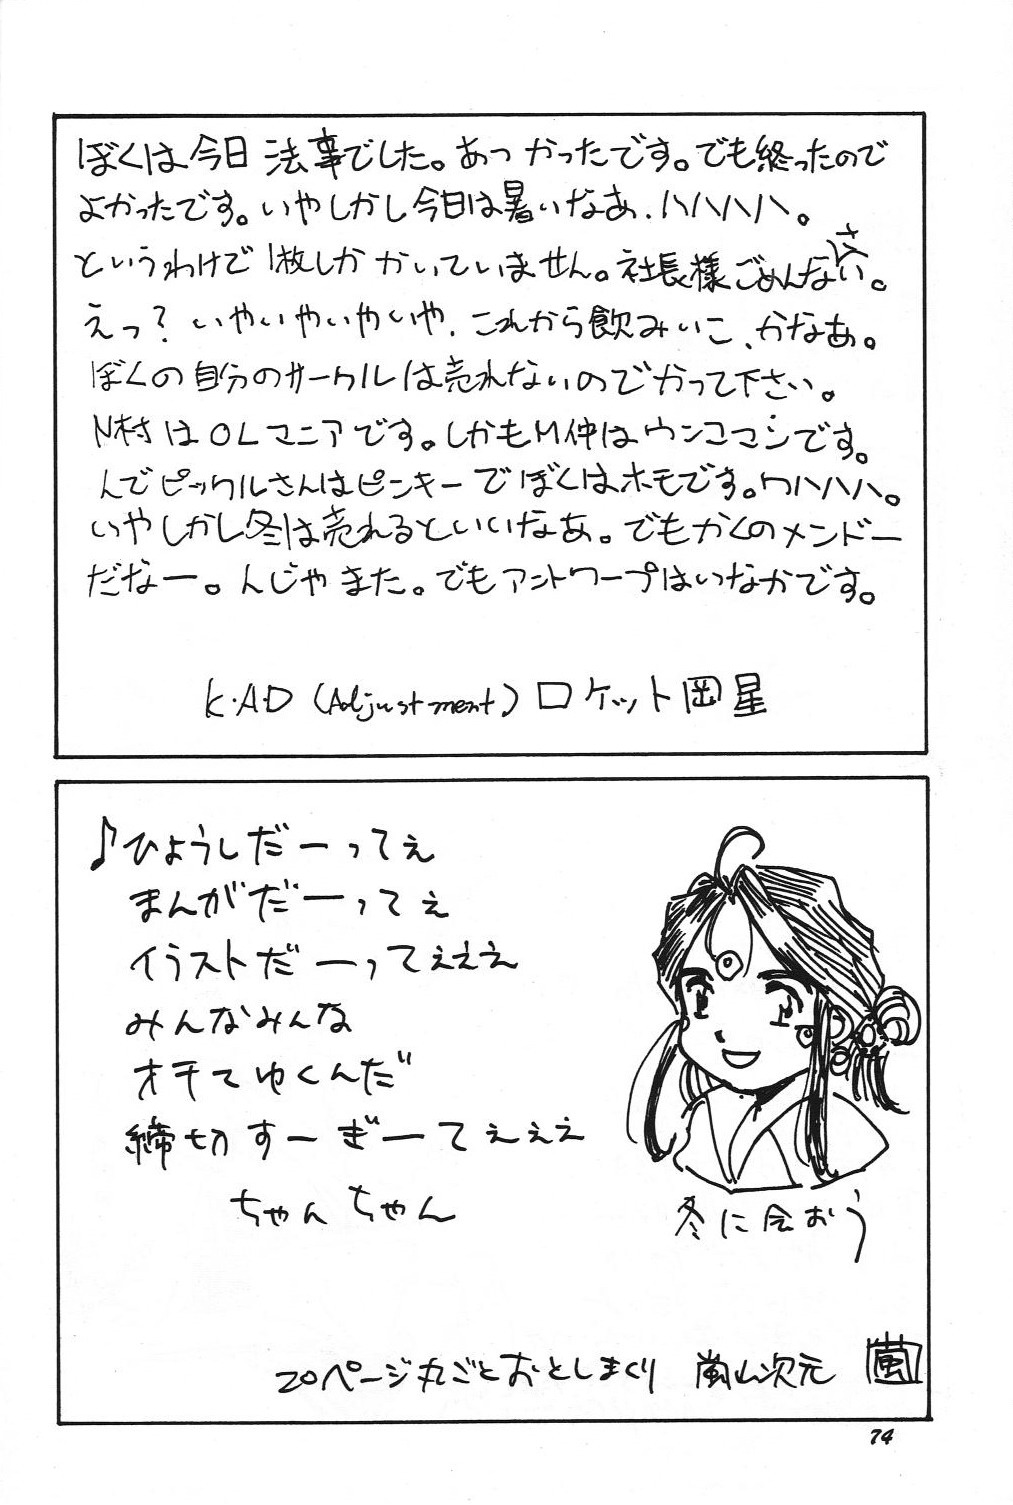 ぼくは今日法事でした。あつかったです。でも終ったので
よかったです。いやしかし今日は暑いなあ.ハハハハ。
というわけで1枚しかかいていません。社長様ごめんなさい。
えっ?いやいやいやいや.これから飲みいこ、かなあ。
ぼくの自分のサークルは売れないのでかって下さい。
N村はOLマニアです。しかもM仲はウンコマシです。
んでピックルさんはピンキーでぼくはホモです。ワハハハ。
いやしかし冬は売れるといいなあ。でもかくのメンドー
だなー。んじゃまた。でもアントワープはいなかです。
K・A・D (Adjustment) ロケット岡星
♪ひょうしだーってぇ
まんがだーってぇ
イラストだーってぇぇぇ
みんなみんな
オチてゆくんだ
締切すーぎーてぇぇぇ
ちゃんちゃん
冬に会おう
20ページ丸ごとおとしまくり 嵐山次元 嵐
74